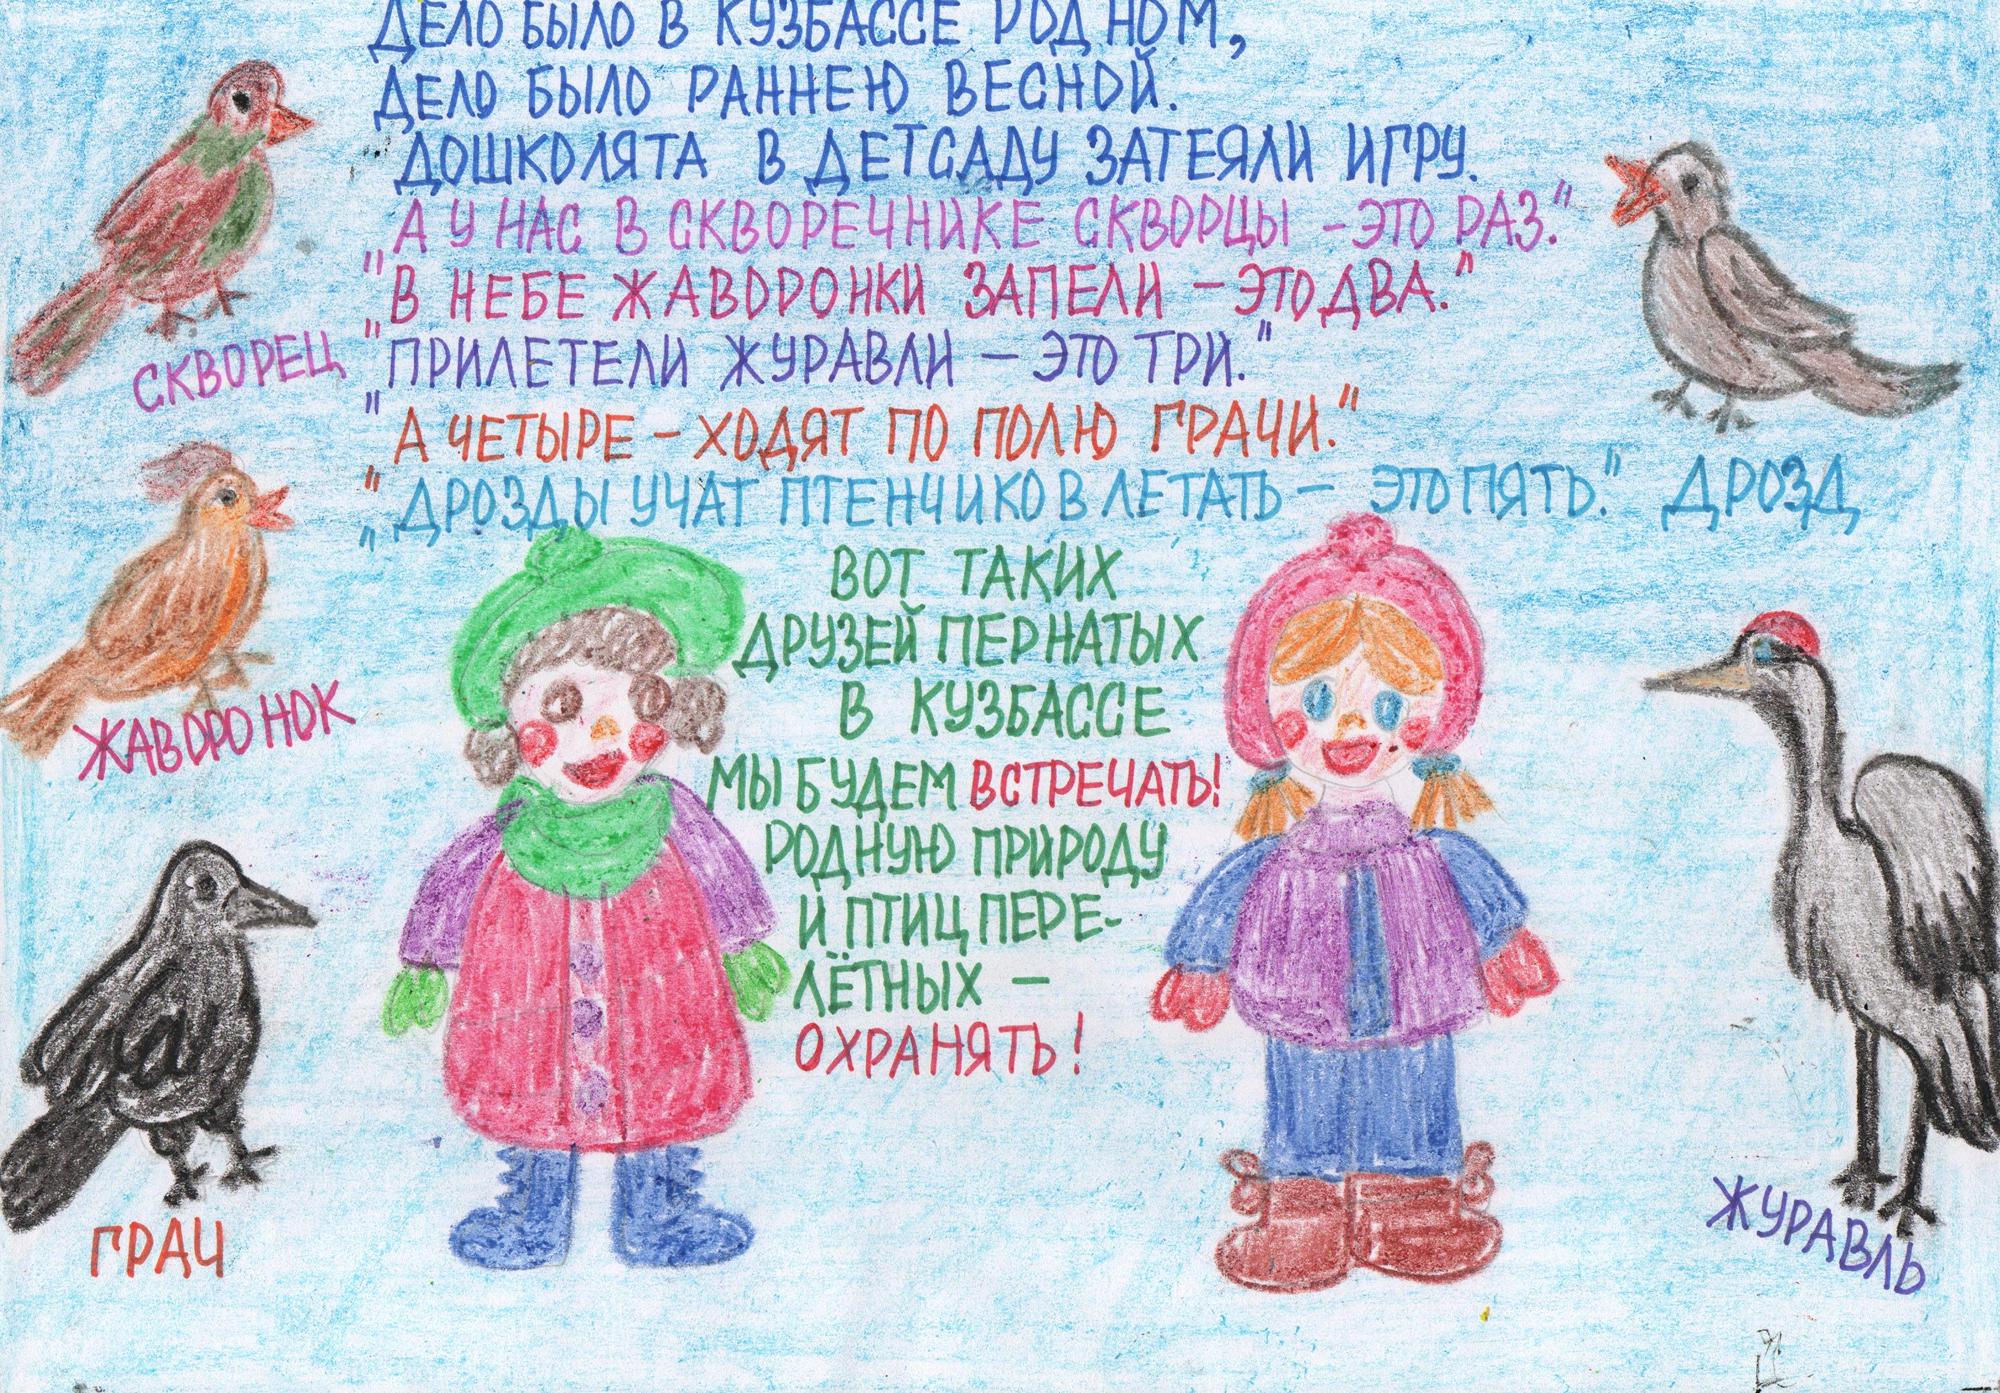 ДЕЛО БЫЛО В КУЗБАССЕ РОДНОМ,
ДЕЛО БЫЛО РАННЕЮ ВЕСНОЙ.
ДОШКОЛЯТА В ДЕТСАДУ ЗАТЕЯЛИ ИГРУ.
„А У НАС В СКВОРЕЧНИКЕ СКВОРЦЫ – ЭТО РАЗ."
„В НЕБЕ ЖАВОРОНКИ ЗАПЕЛИ – ЭТО ДВА."
„ПРИЛЕТЕЛИ ЖУРАВЛИ – ЭТО ТРИ."
„А ЧЕТЫРЕ – ХОДЯТ ПО ПОЛЮ ГРАЧИ."
„ДРОЗДЫ УЧАТ ПТЕНЧИКОВ ЛЕТАТЬ – ЭТО ПЯТЬ."
ВОТ ТАКИХ
ДРУЗЕЙ ПЕРНАТЫХ
В КУЗБАССЕ
МЫ БУДЕМ ВСТРЕЧАТЬ!
РОДНУЮ ПРИРОДУ
И ПТИЦ ПЕРЕ-
ЛЁТНЫХ –
ОХРАНЯТЬ!
СКВОРЕЦ
ЖАВОРОНОК
ГРАЧ
ДРОЗД
ЖУРАВЛЬ